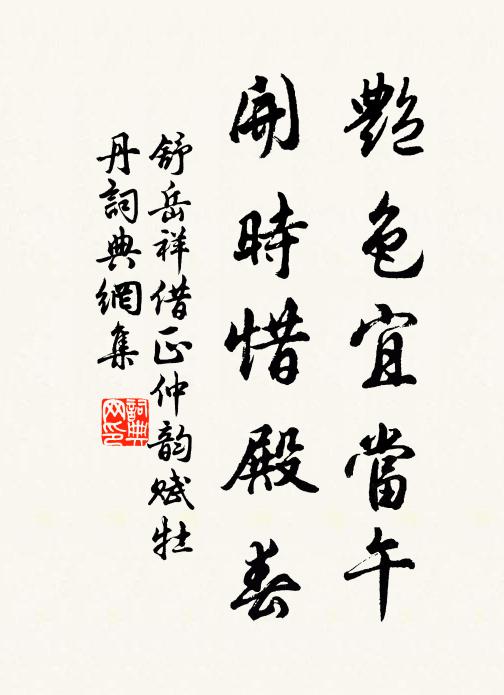 艷色宜當午
開時惜殿春
舒岳祥借正仲韵賦牡
丹詞典網集
詞典
网印